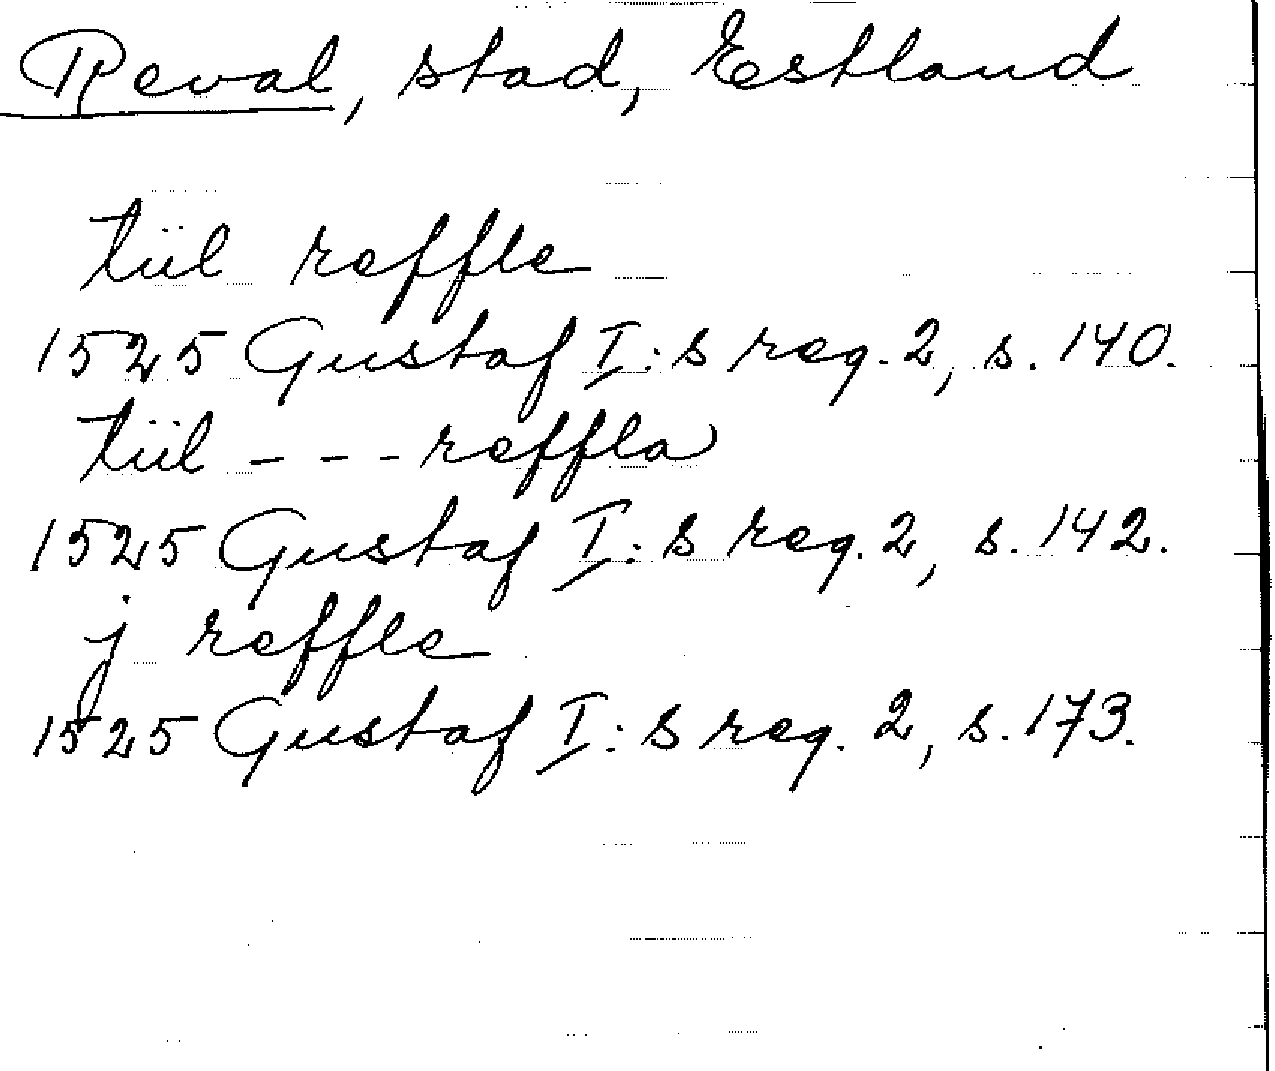 Reval, stad, Estland
tiil reffle
1525 Gustaf I:s reg. 2, s. 140.
tiil - - - reffla
1525 Gustaf I:s reg. 2, s. 142.
j reffle
1525 Gustaf I:s reg. 2, s. 173.